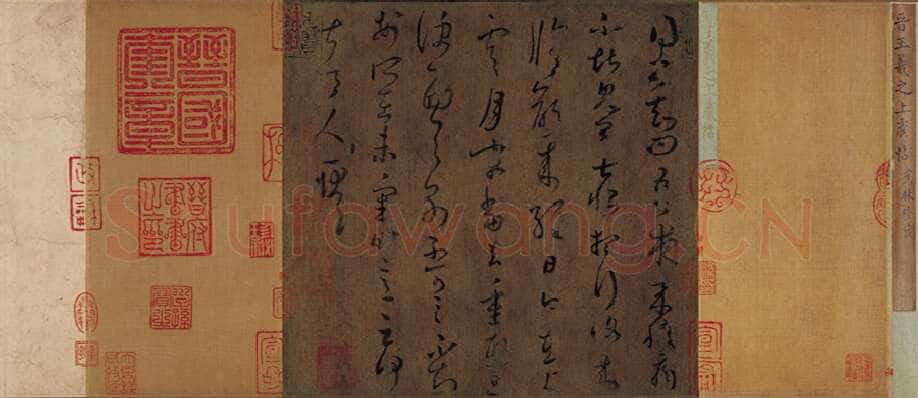 晉王羲之上虞帖
得書知問吾夜來腹痛
不堪見卿甚恨想行復來
脩齡來經日今在上
虞月末當去重熙旦
便西與別不可言不知
安所在未審時意云何
甚令人耿耿
晉國奎章
晉府書畫之印
Shufawang.CN